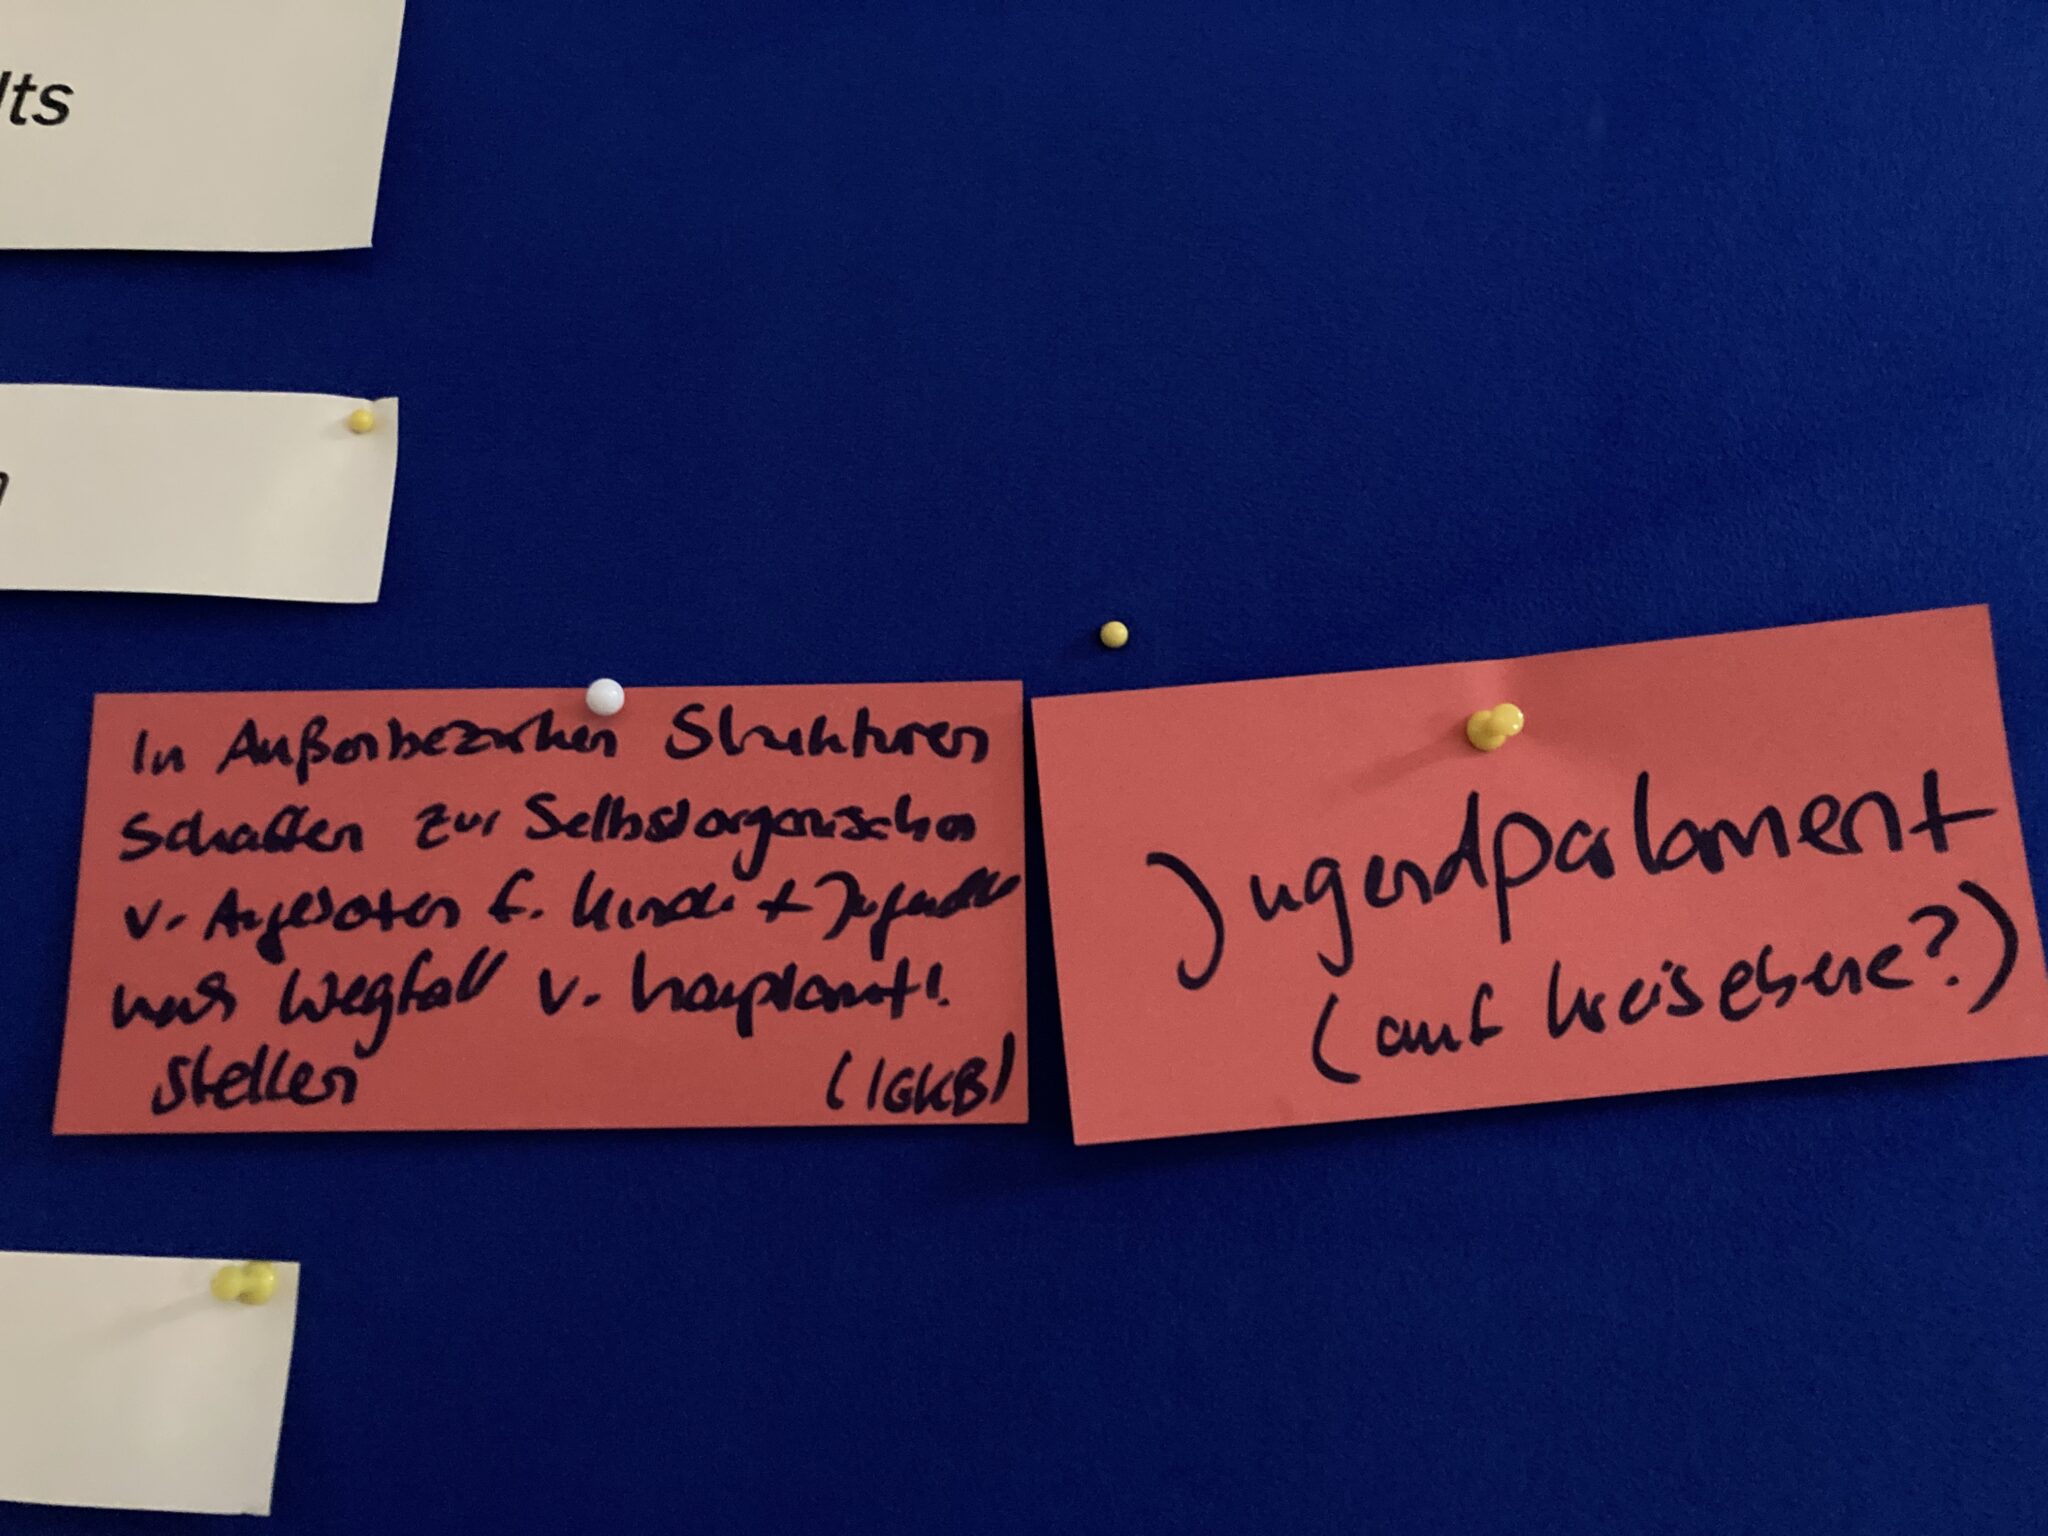 lts
In Außenbezirken Strukturen
schaffen zur Selbstorganisation
v. Angeboten f. Kinder + Jugendl.
nach Wegfall v. hauptamtl.
Stellen
(IGKB)
Jugendparlament
(auf Kreisebene?)